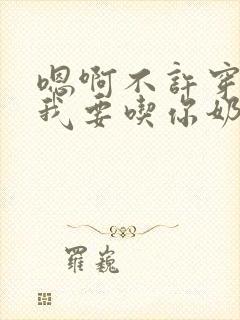 嗯啊不許穿
我要喫你奶
羅巍